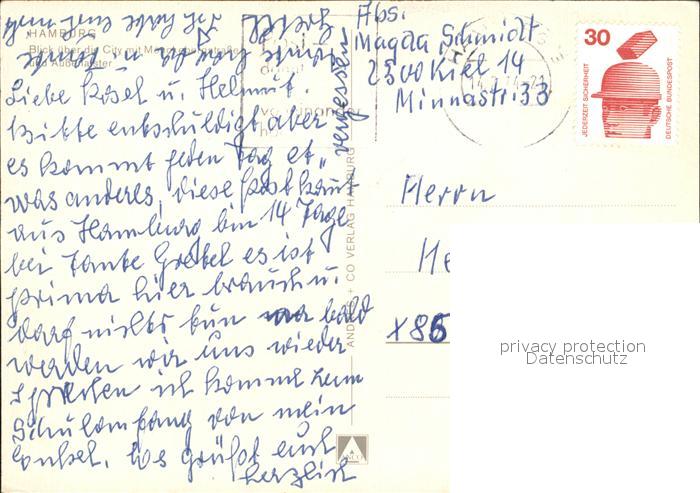 HAMBURG
Blick über die City mit
und Außenalster
Liebe Rosel u. Helmut.
bitte entschuldigt aber
es kommt jeden Tag et„
was anderes, diese Postkart
aus Hamburg bin 14 Tage
bei Tante Gretel es ist
prima hier brauch u.
darf nichts tun bald
werden wir uns wieder
sprechen ich komme zum
Schulanfang von mein
Enkel. Es grüßt euch
herzlich
vergessen
Abs.
Magda Schmidt
2300 Kiel 14
Minnastr. 33
30
JEDERZEIT SICHERHEIT
DEUTSCHE BUNDESPOST
Herrn
He
x86
ANDRES + CO VERLAG HAMBURG
ANCO
privacy protection
Datenschutz